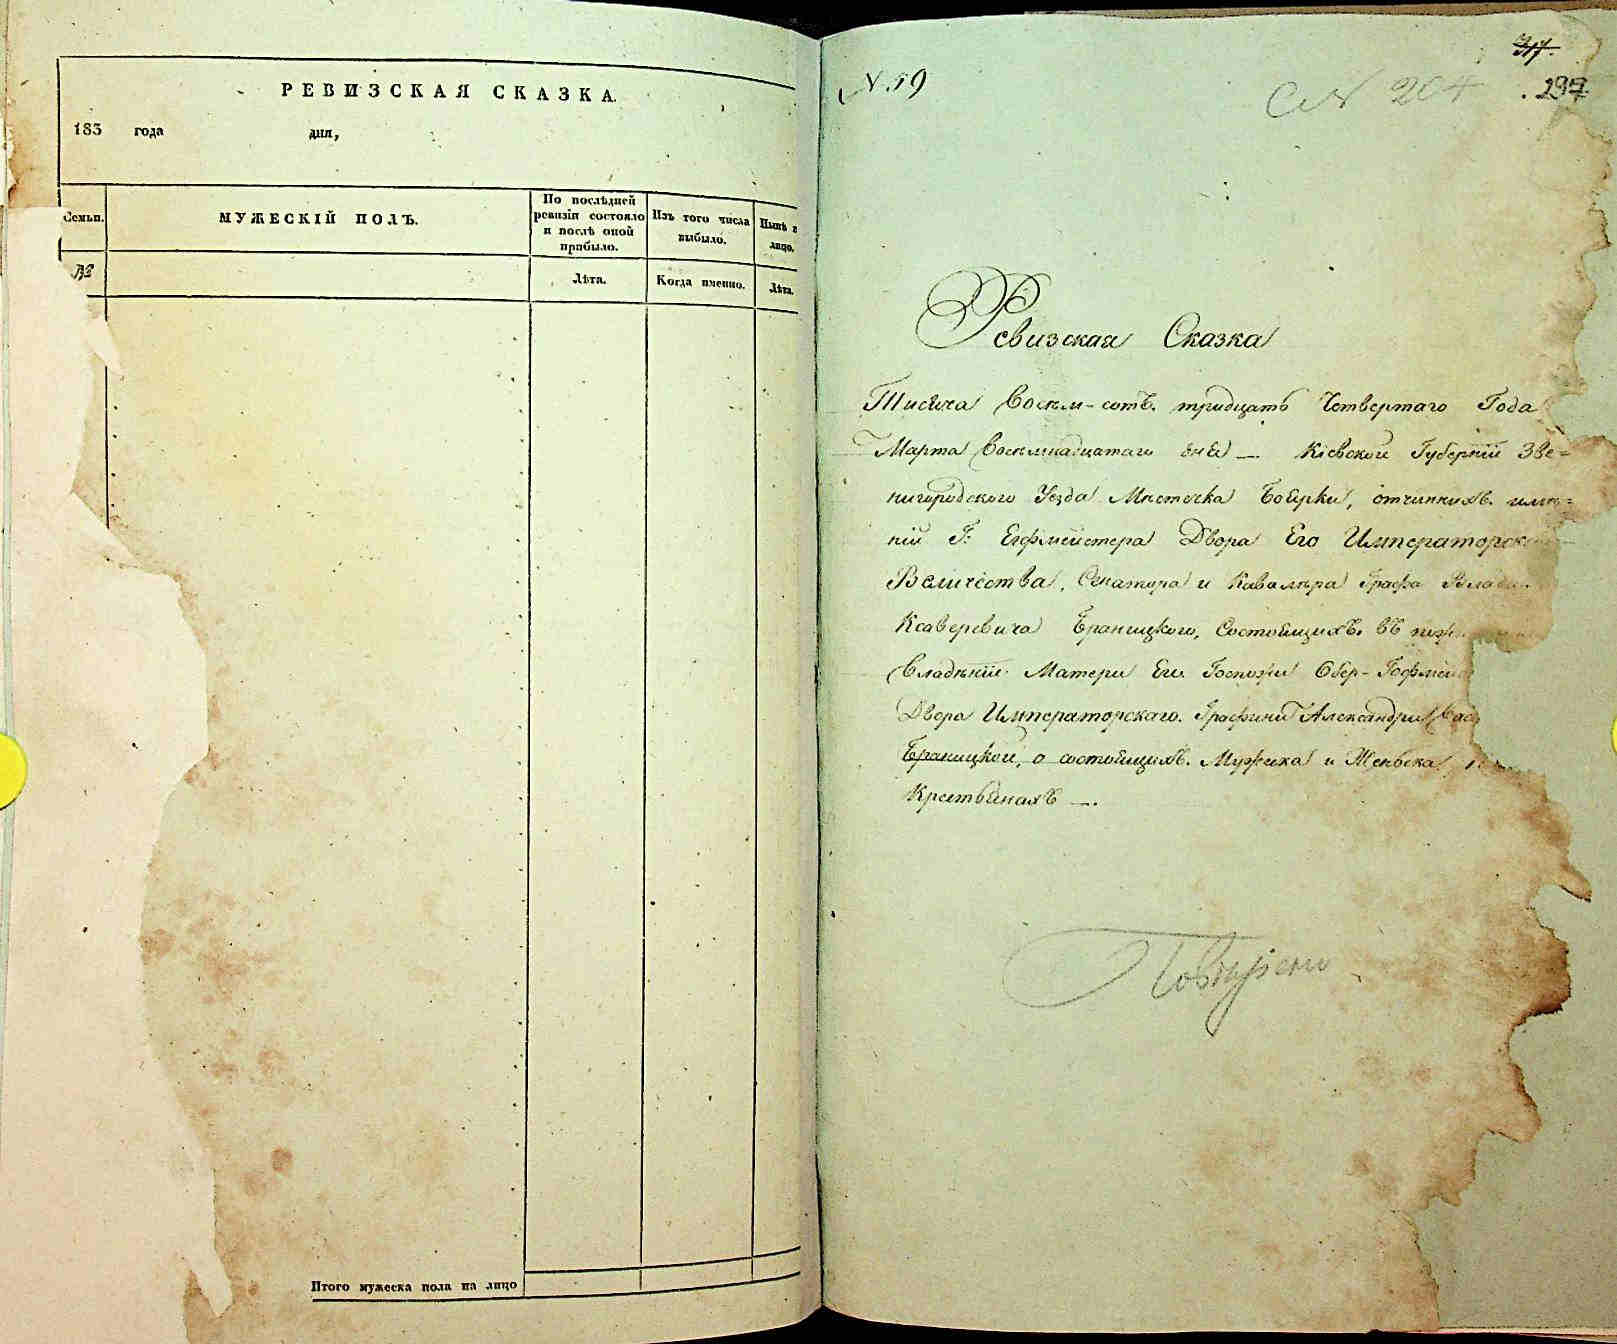 РЕВИЗСКАЯ СКАЗКА.
183 года дня,
Семьи.
МУЖЕСКІЙ ПОЛЪ.
По послѣдней
ревизіи состояло
и послѣ оной
прибыло.
Изъ того числа
выбыло.
Нынѣ н
лицо.
№
Лѣта.
Когда именно.
Лѣта.
Итого мужеска пола на лицо
N. 19
317.
204
297
Ревизская Сказка
Тисяча Восем-сотъ тридцать Четвертаго Года
Марта Восемнадцатаго дня — Кіевской Губерніи Зве-
нигородского Уезда Мистечка Боярки, отчинныхъ имѣ-
ній Г: Егфмейстера Двора Его Императорск
Величества, Сенатора и Кавалѣра Графа Влад
Ксаверевича Браницкого, Состоящихъ въ
Владѣніи Матери Его Госпожи Обер-Гофмей
Двора Императорскаго Графини Александри Вас
Браницкой, о состоящихъ Мужеска и Женьска
Крестьянахъ —.